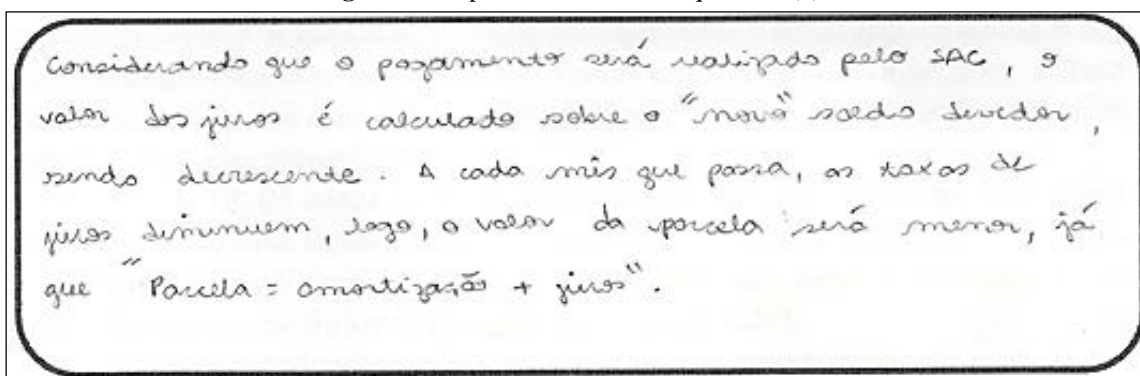 Considerando que o pagamento será realizado pelo SAC, o
valor dos juros é calculado sobre o "novo" saldo devedor,
sendo decrescente. A cada mês que passa, as taxas de
juros diminuem, logo, o valor da parcela será menor, já
que "Parcela = amortização + juros".